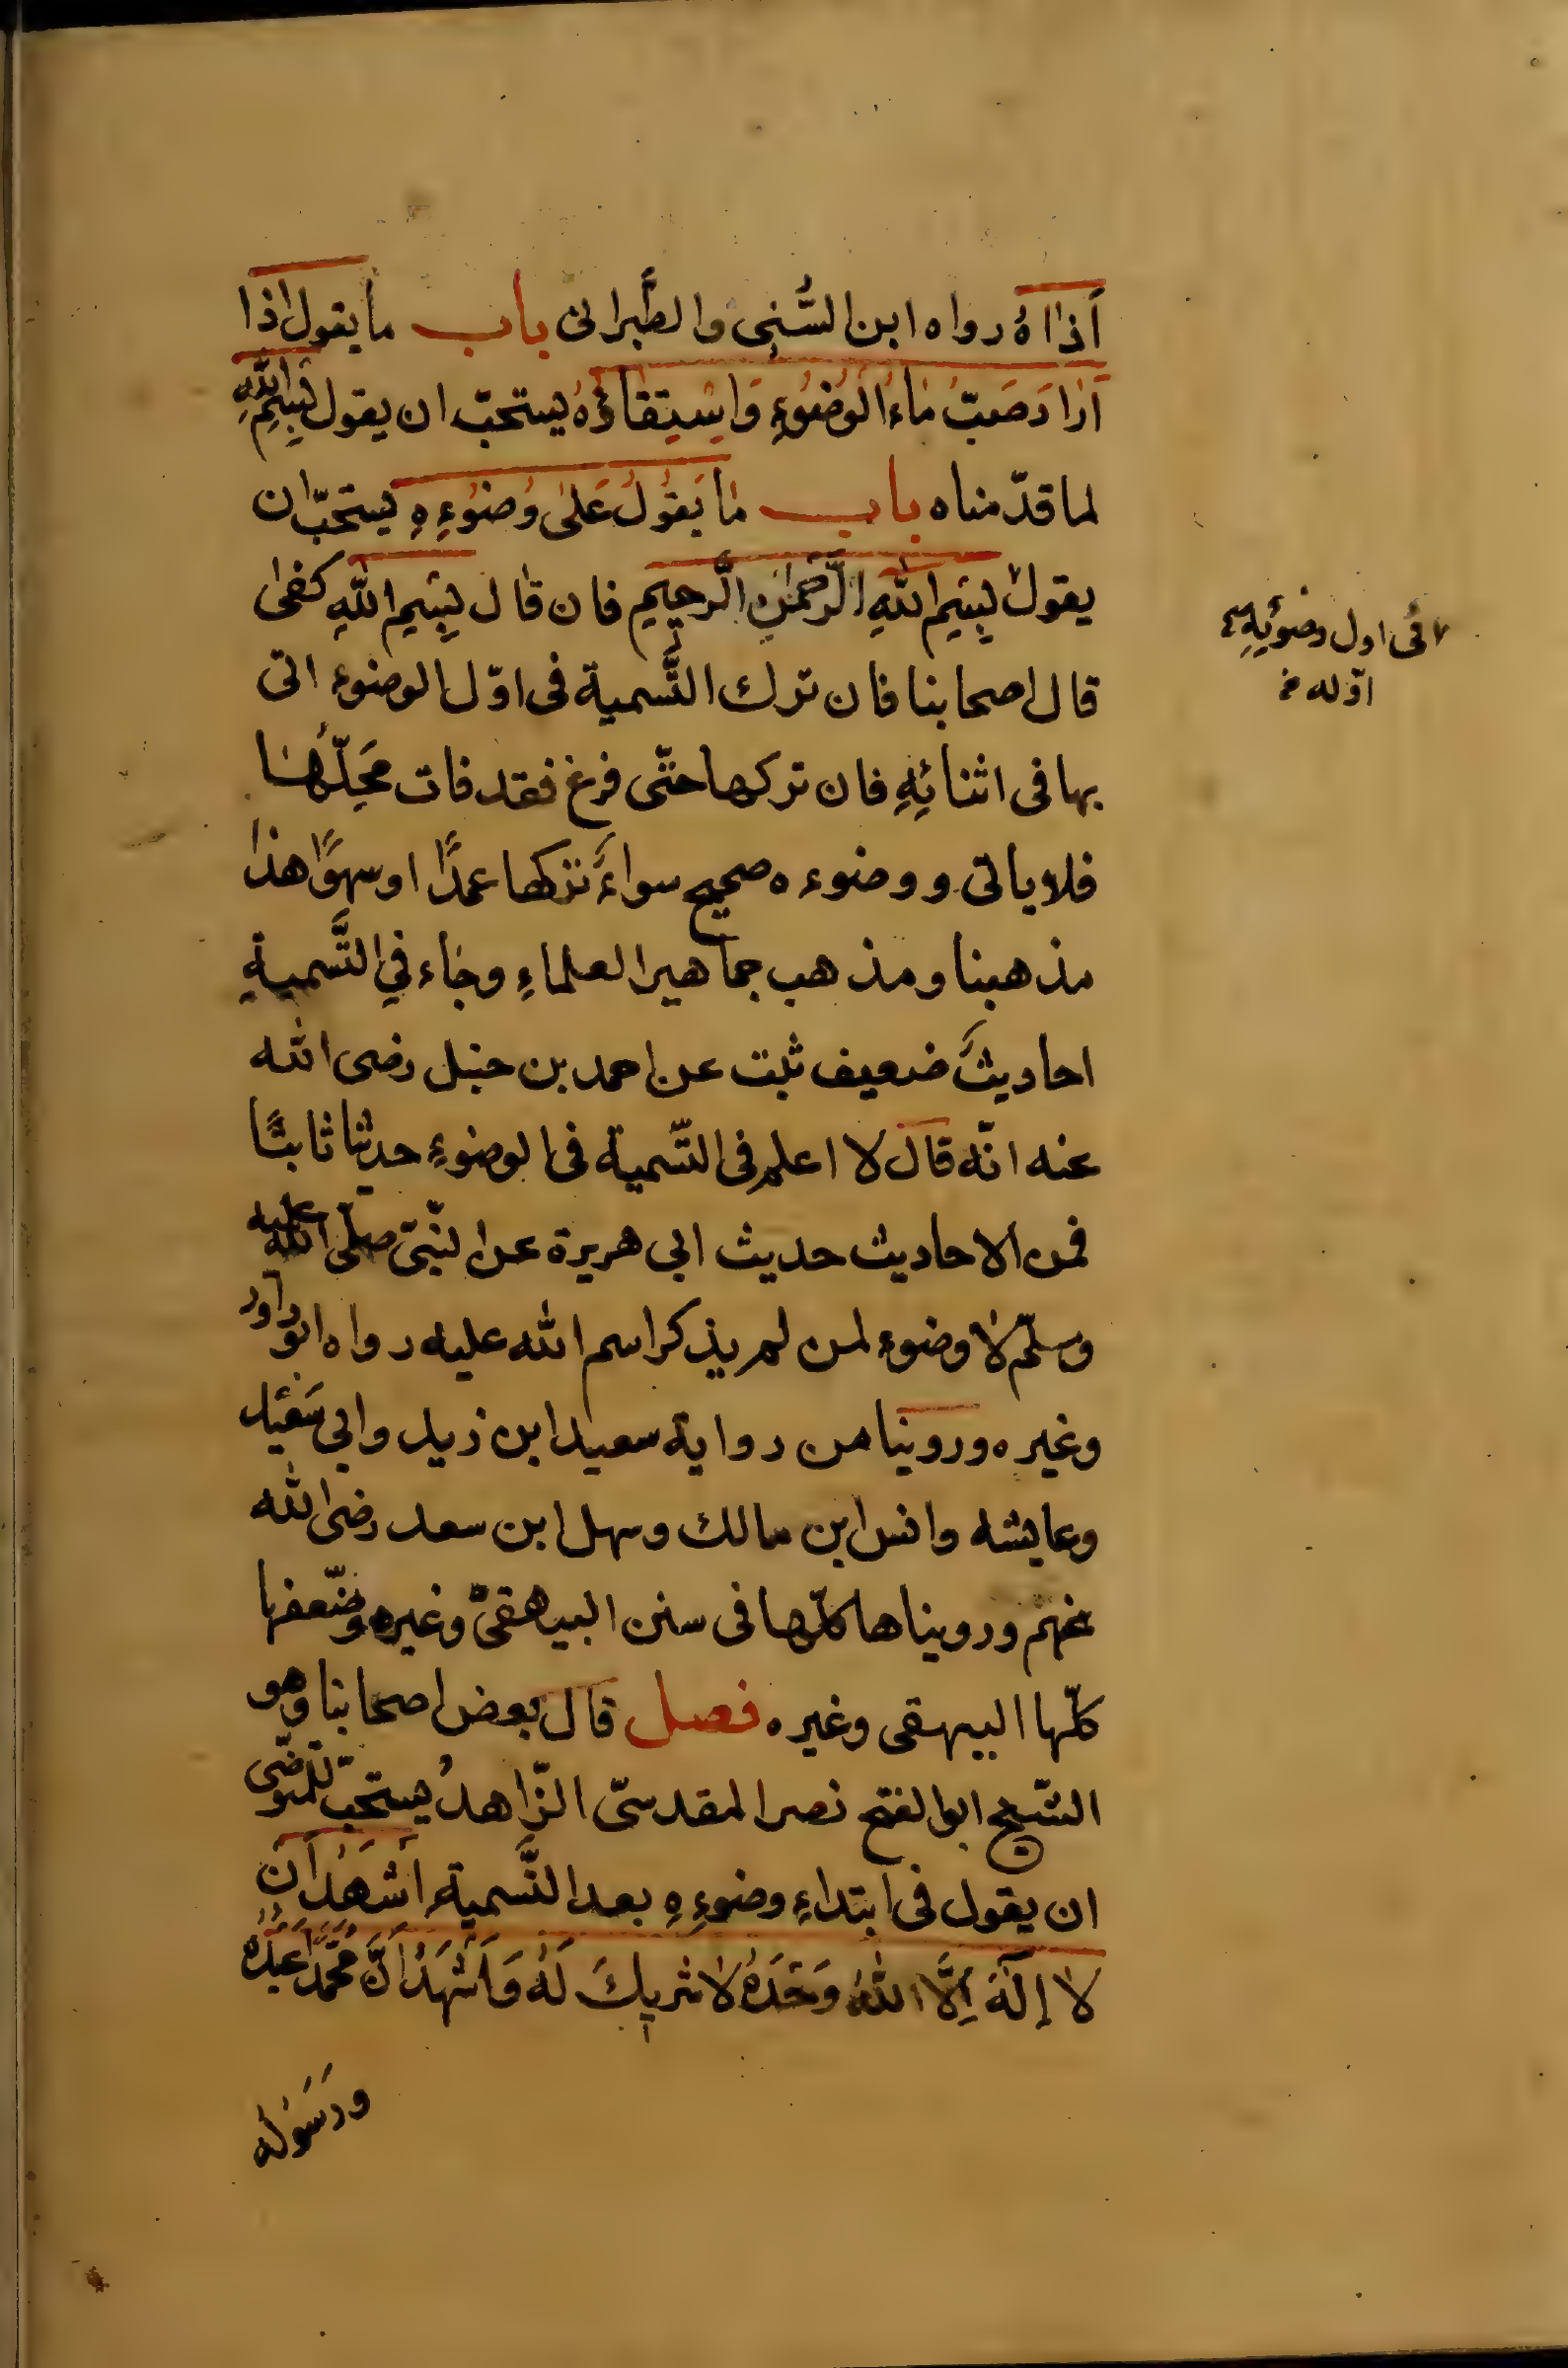 اَذَاهُ رواه ابن السُّنِى والطَّبرانى باب ما يقول اذا
اَرَادَ صَبَّ مٰاءِ الوُضُوءِ وَاِسْتِقٰاؤهُ يستحبّ ان يقول بِسْمِ اللّٰهِ
لما قدّمناه باب مٰا يَقُولُ عَلىٰ وُضُوُءِهِ يستحبّ ان
يقول بِسْمِ اللّٰهِ الرَّحْمٰنِ الرَّحيم فان قال بِسْمِ اللّٰهِ كفىٰ
قال اصحابنا فان ترك التَّسمية فى اوّل الوضوء اتى
بها فى اثنائِهِ فان تركها حتّى فرغ فقد فات مَحِلّهٰا
فلا ياتى ووضوءه صحيح سواءً تركها عمدًا او سهوًا هذا
مذهبنا ومذهب جماهير العلماءِ وجٰاء فى التَّسميةِ
احاديثَ ضعيف ثبت عن احمد بن حنبل رضى الله
عنه انّه قال لا اعلم فى التّسمية فى الوضوءِ حديثا ثابتًا
فمن الاحاديث حديث ابى هريرة عن النّبىّ صلّى الله عليه
وسلّم لا وضوء لمن لم يذكر اسم الله عليه رواه ابو داود
وغيره وروينا من رواية سعيد ابن زيد وابى سَعيد
وعايشه وانس ابن مالك وسهل ابن سعد رضى الله
عنهم ورويناها كلّها فى سنن البيهقىّ وغيره وضّعفها
كلّها البيهقى وغيره فصل قال بعض اصحابنا وهو
الشيخ ابو الفتح نصر المقدسىّ الزّاهدُ يستحبّ للمتوضّى
ان يقول فى ابتداءِ وضوءِهِ بعد التَّسميةِ اَشْهَدُ اَن
لا اِلٰهَ اِلَّا اللهُ وَحْدَهُ لا شريكَ لَهُ وَاَشْهَدُ اَنَّ مُحَمَّدًا عَبْدُهُ
وَرَسُولُه
فى اول وضوئِهِ
اوّله